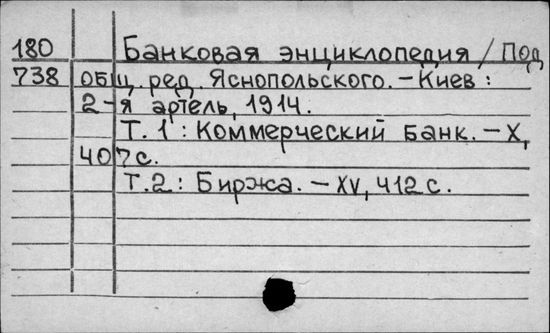 180 Банковая энциклопедия / Под
738 общ. ред. Яснопольского. – Киев :
2-я артель, 1914.
Т. 1 : Коммерческий банк. – X,
407 с.
Т. 2 : Биржа. – XV, 412 с.